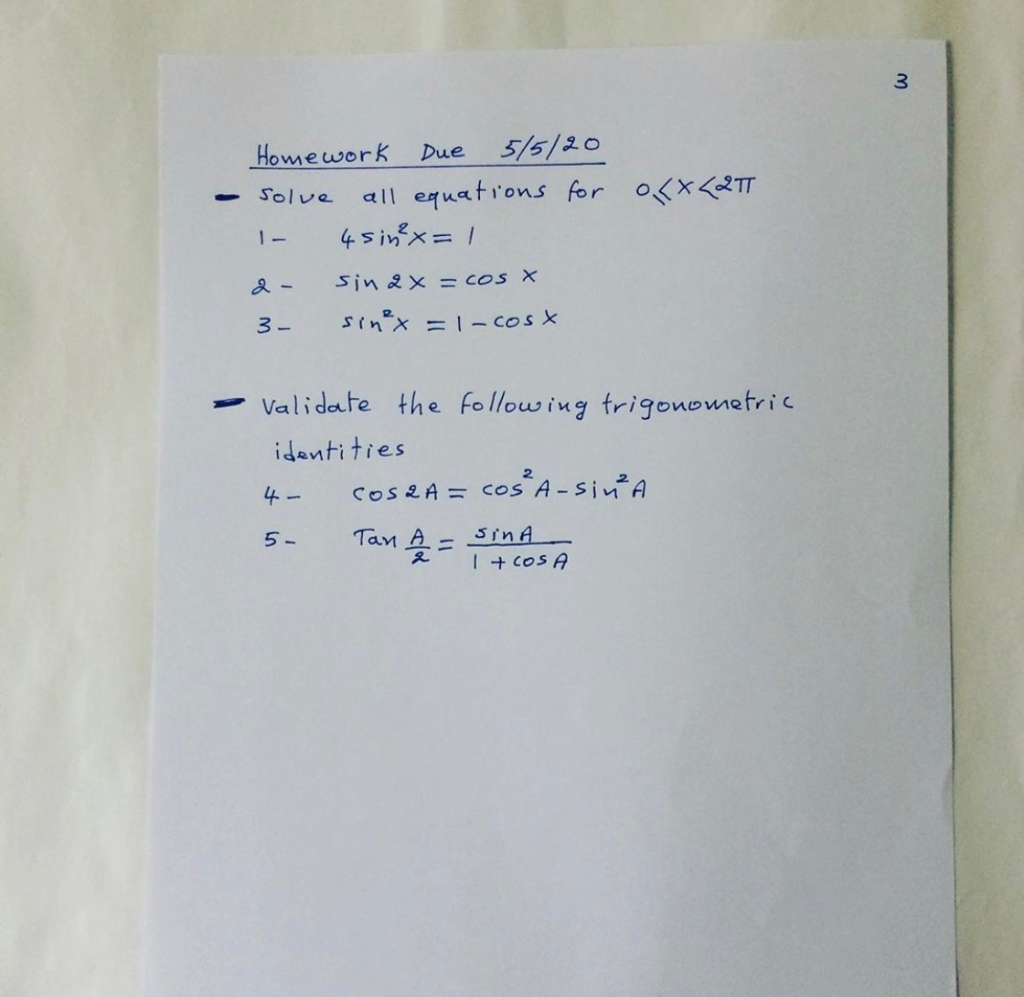 3
Homework Due 5/5/20
- Solve all equations for 0≤x<2π
1- 4sin²x=1
2- sin2x=cos x
3- sin²x=1-cosx
- Validate the following trigonometric
identities
4- cos2A=cos²A-sin²A
5- Tan A/2 = sinA/1+cosA